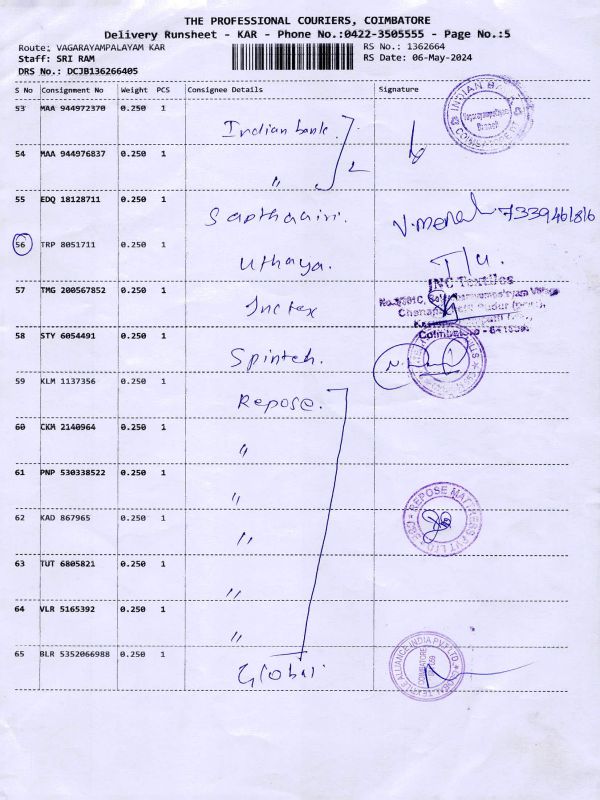 THE PROFESSIONAL COURIERS, COIMBATORE
Delivery Runsheet - KAR - Phone No.:0422-3505555 - Page No.:5
Route: VAGARAYAMPALAYAM KAR RS No.: 1362664
Staff: SRI RAM RS Date: 06-May-2024
DRS No.: DCJB136266405
S No Consignment No Weight PCS Consignee Details Signature
53 MAA 944972370 0.250 1 Indian bank.
INDIAN BANK
Vagarayampalayam
Branch
54 MAA 944976837 0.250 1 "
55 EDQ 18128711 0.250 1 7339461816
56 TRP 8051711 0.250 1 Uthaya.
57 TMG 200567852 0.250 1 Inctex
INC Textiles
Coimbatore
58 STY 6054491 0.250 1 Spintech.
59 KLM 1137356 0.250 1 Repose.
60 CKM 2140964 0.250 1 "
61 PNP 530338522 0.250 1 "
62 KAD 867965 0.250 1 "
REPOSE MATTRESS PVT LTD
63 TUT 6805821 0.250 1 "
64 VLR 5165392 0.250 1 "
65 BLR 5352066988 0.250 1 Global
TEXTILE ALLIANCE INDIA PVT LTD.
COIMBATORE